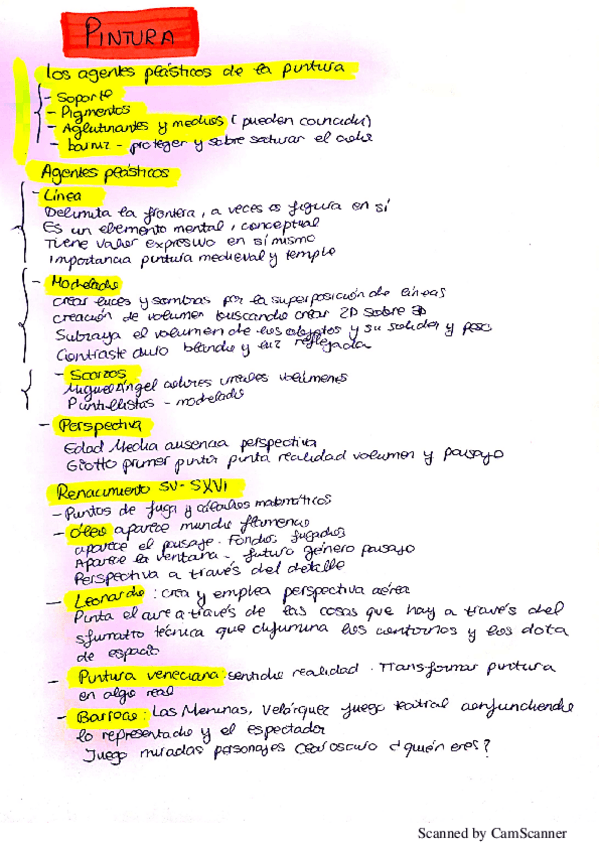 PINTURA
Los agentes plásticos de la pintura
- Soporte
- Pigmentos
- Aglutinantes y medios (pueden coincidir)
- barniz - proteger y sobre saturar el color
Agentes plásticos
- Línea
Delimita la frontera, a veces es figura en sí
Es un elemento mental, conceptual
Tiene valor expresivo en sí mismo
Importancia pintura medieval y temple
- Modelado
crear luces y sombras por la superposición de líneas
creación de volumen buscando crear 2D sobre 3D
Subraya el volumen de los objetos y su solidez y peso
Contraste duro blando y luz reflejada
- Scorzos
Miguel Ángel colores irreales volúmenes
Puntillistas - modelado
- Perspectiva
Edad Media ausencia perspectiva
Giotto primer pintor pinta realidad volumen y paisaje
Renacimiento SV-SXVI
- Puntos de fuga y cálculos matemáticos
- óleo aparece mundo flamenco
aparece el paisaje. Fondos fugados
Aparece la ventana - futuro género paisaje
Perspectiva a través del detalle
- Leonardo: crea y emplea perspectiva aérea
Pinta el aire a través de las cosas que hay a través del
sfumatto técnica que difumina los contornos y los dota
de espacio
- Pintura veneciana: sentido realidad. Transformar pintura
en algo real
- Barroco: Las Meninas, Velázquez juego teatral confundiendo
lo representado y el espectador
Juego miradas personajes claroscuro ¿quién eres?
Scanned by CamScanner